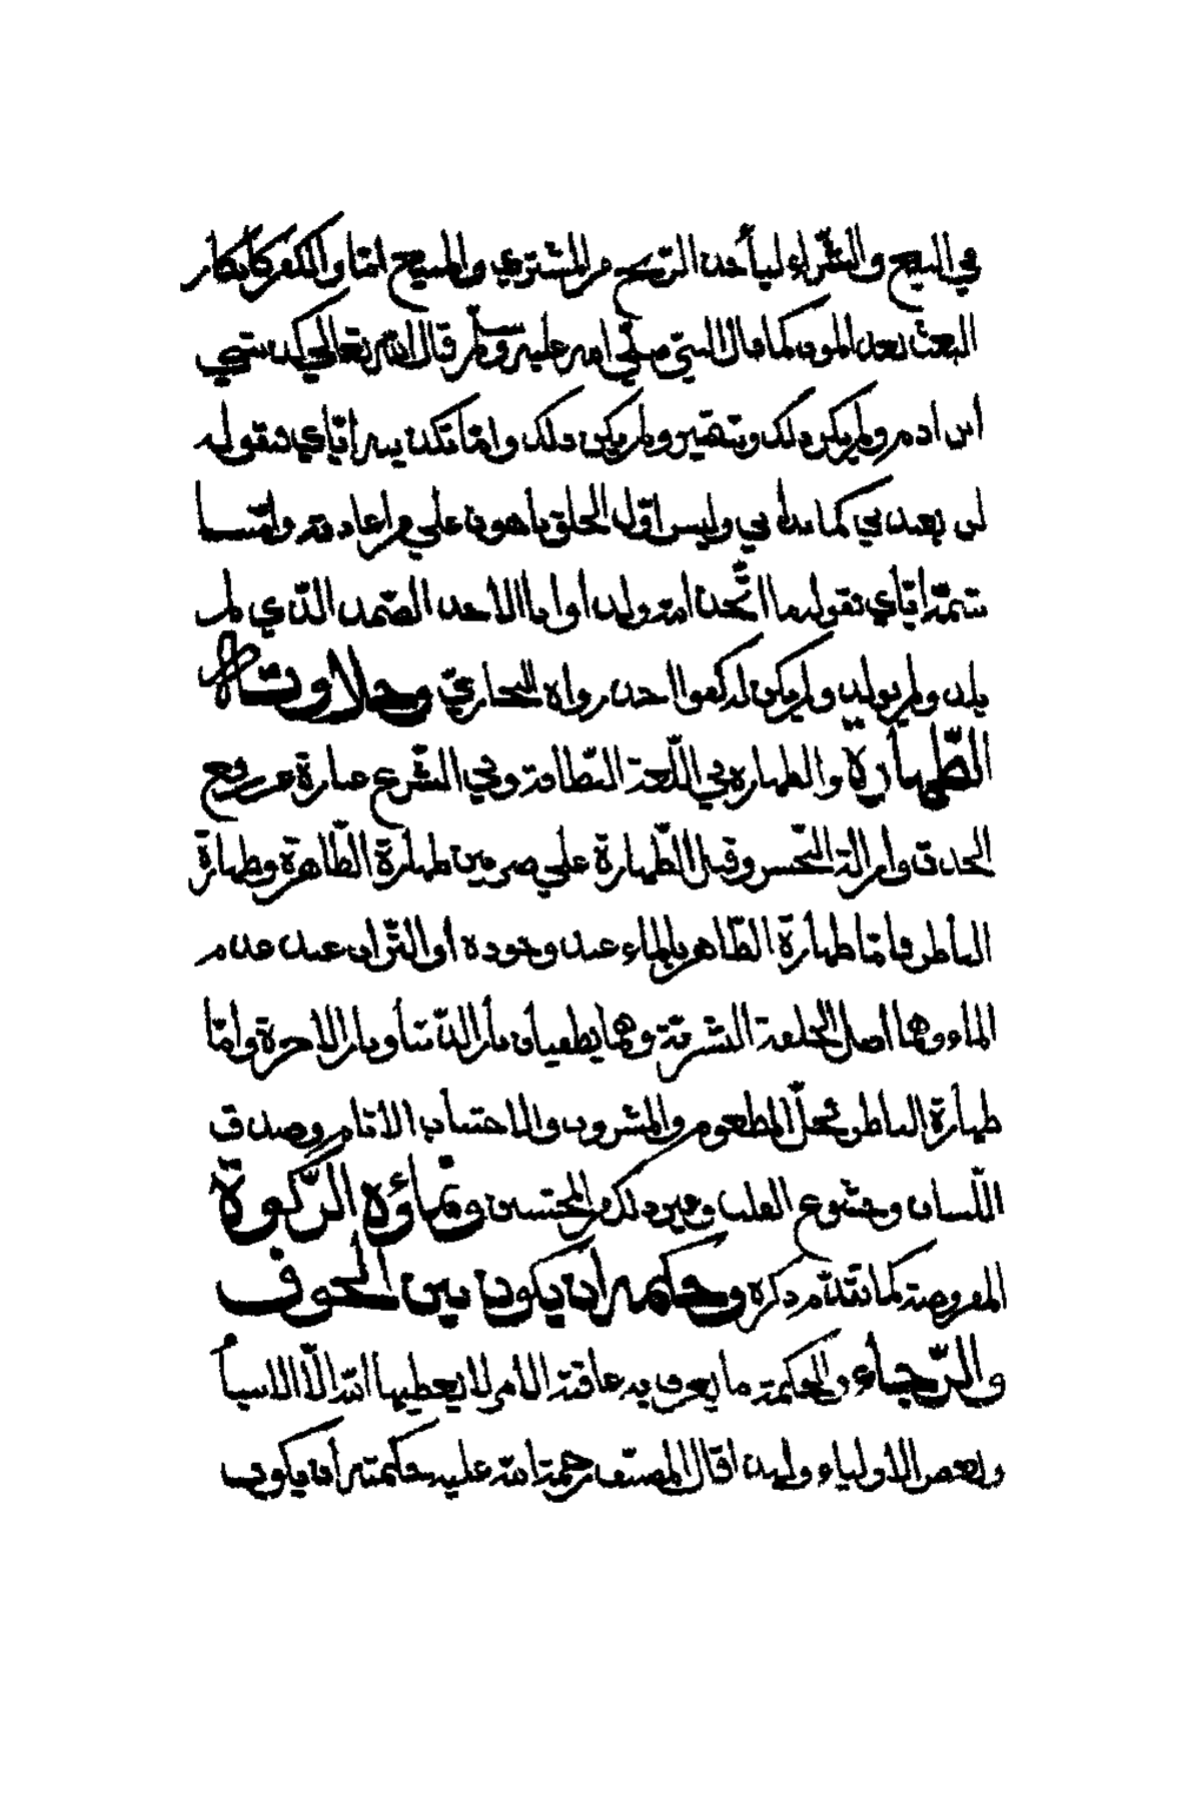 في البيع والشراء ليأخذ الربح من المشتري والمبيع امّا والكفر كأنكار
البعث بعد الموت كما قال النبيّ صلّي الله عليه وسلّم قال الله تعالي كذبني
ابن ادم ولم يكن ذلك وشتمني ولم يكن ذلك وامّا تكذيبه ايّاي فقوله
لن يعيدني كما بدأني وليس اوّل الخلق بأهون علي من اعادته وامّا
شتمه ايّاي فقوله اتّخذ الله ولدا وانا الأحد الصّمد الّذي لم
يلد ولم يولد ولم يكن له كفوا احد رواه البخاريّ وحلاوته
الطّهارة والطهارة في اللّغة النّظافة وفي الشّرع عبارة عن رفع
الحدث وازالة النّجس وقيل الطّهارة علي ضربين طهارة الظّاهرة وطهارة
الباطن فامّا طهارة الظّاهر بالماء عند وجوده أو التّراب عند عدم
الماء وهما اصل الخلقة البشريّة وهما يطفيان نار الدّنيا ونار الاخرة وامّا
طهارة الباطن بحلّ المطعوم والمشروب والاجتناب الاثام وصدق
اللّسان وخشوع القلب وغير ذلك من المحتسبين ونماؤه الزّكوة
المفروضة كما تقدّم ذكره وحكمه أن يكون بين الخوف
والرّجاء والحكمة ما يعرف به عاقبة الأمر لا يعطيها الله الّا الانبياء
وبعض الأولياء ولهذا قال المصنّف رحمة الله عليه حكمته أن يكون